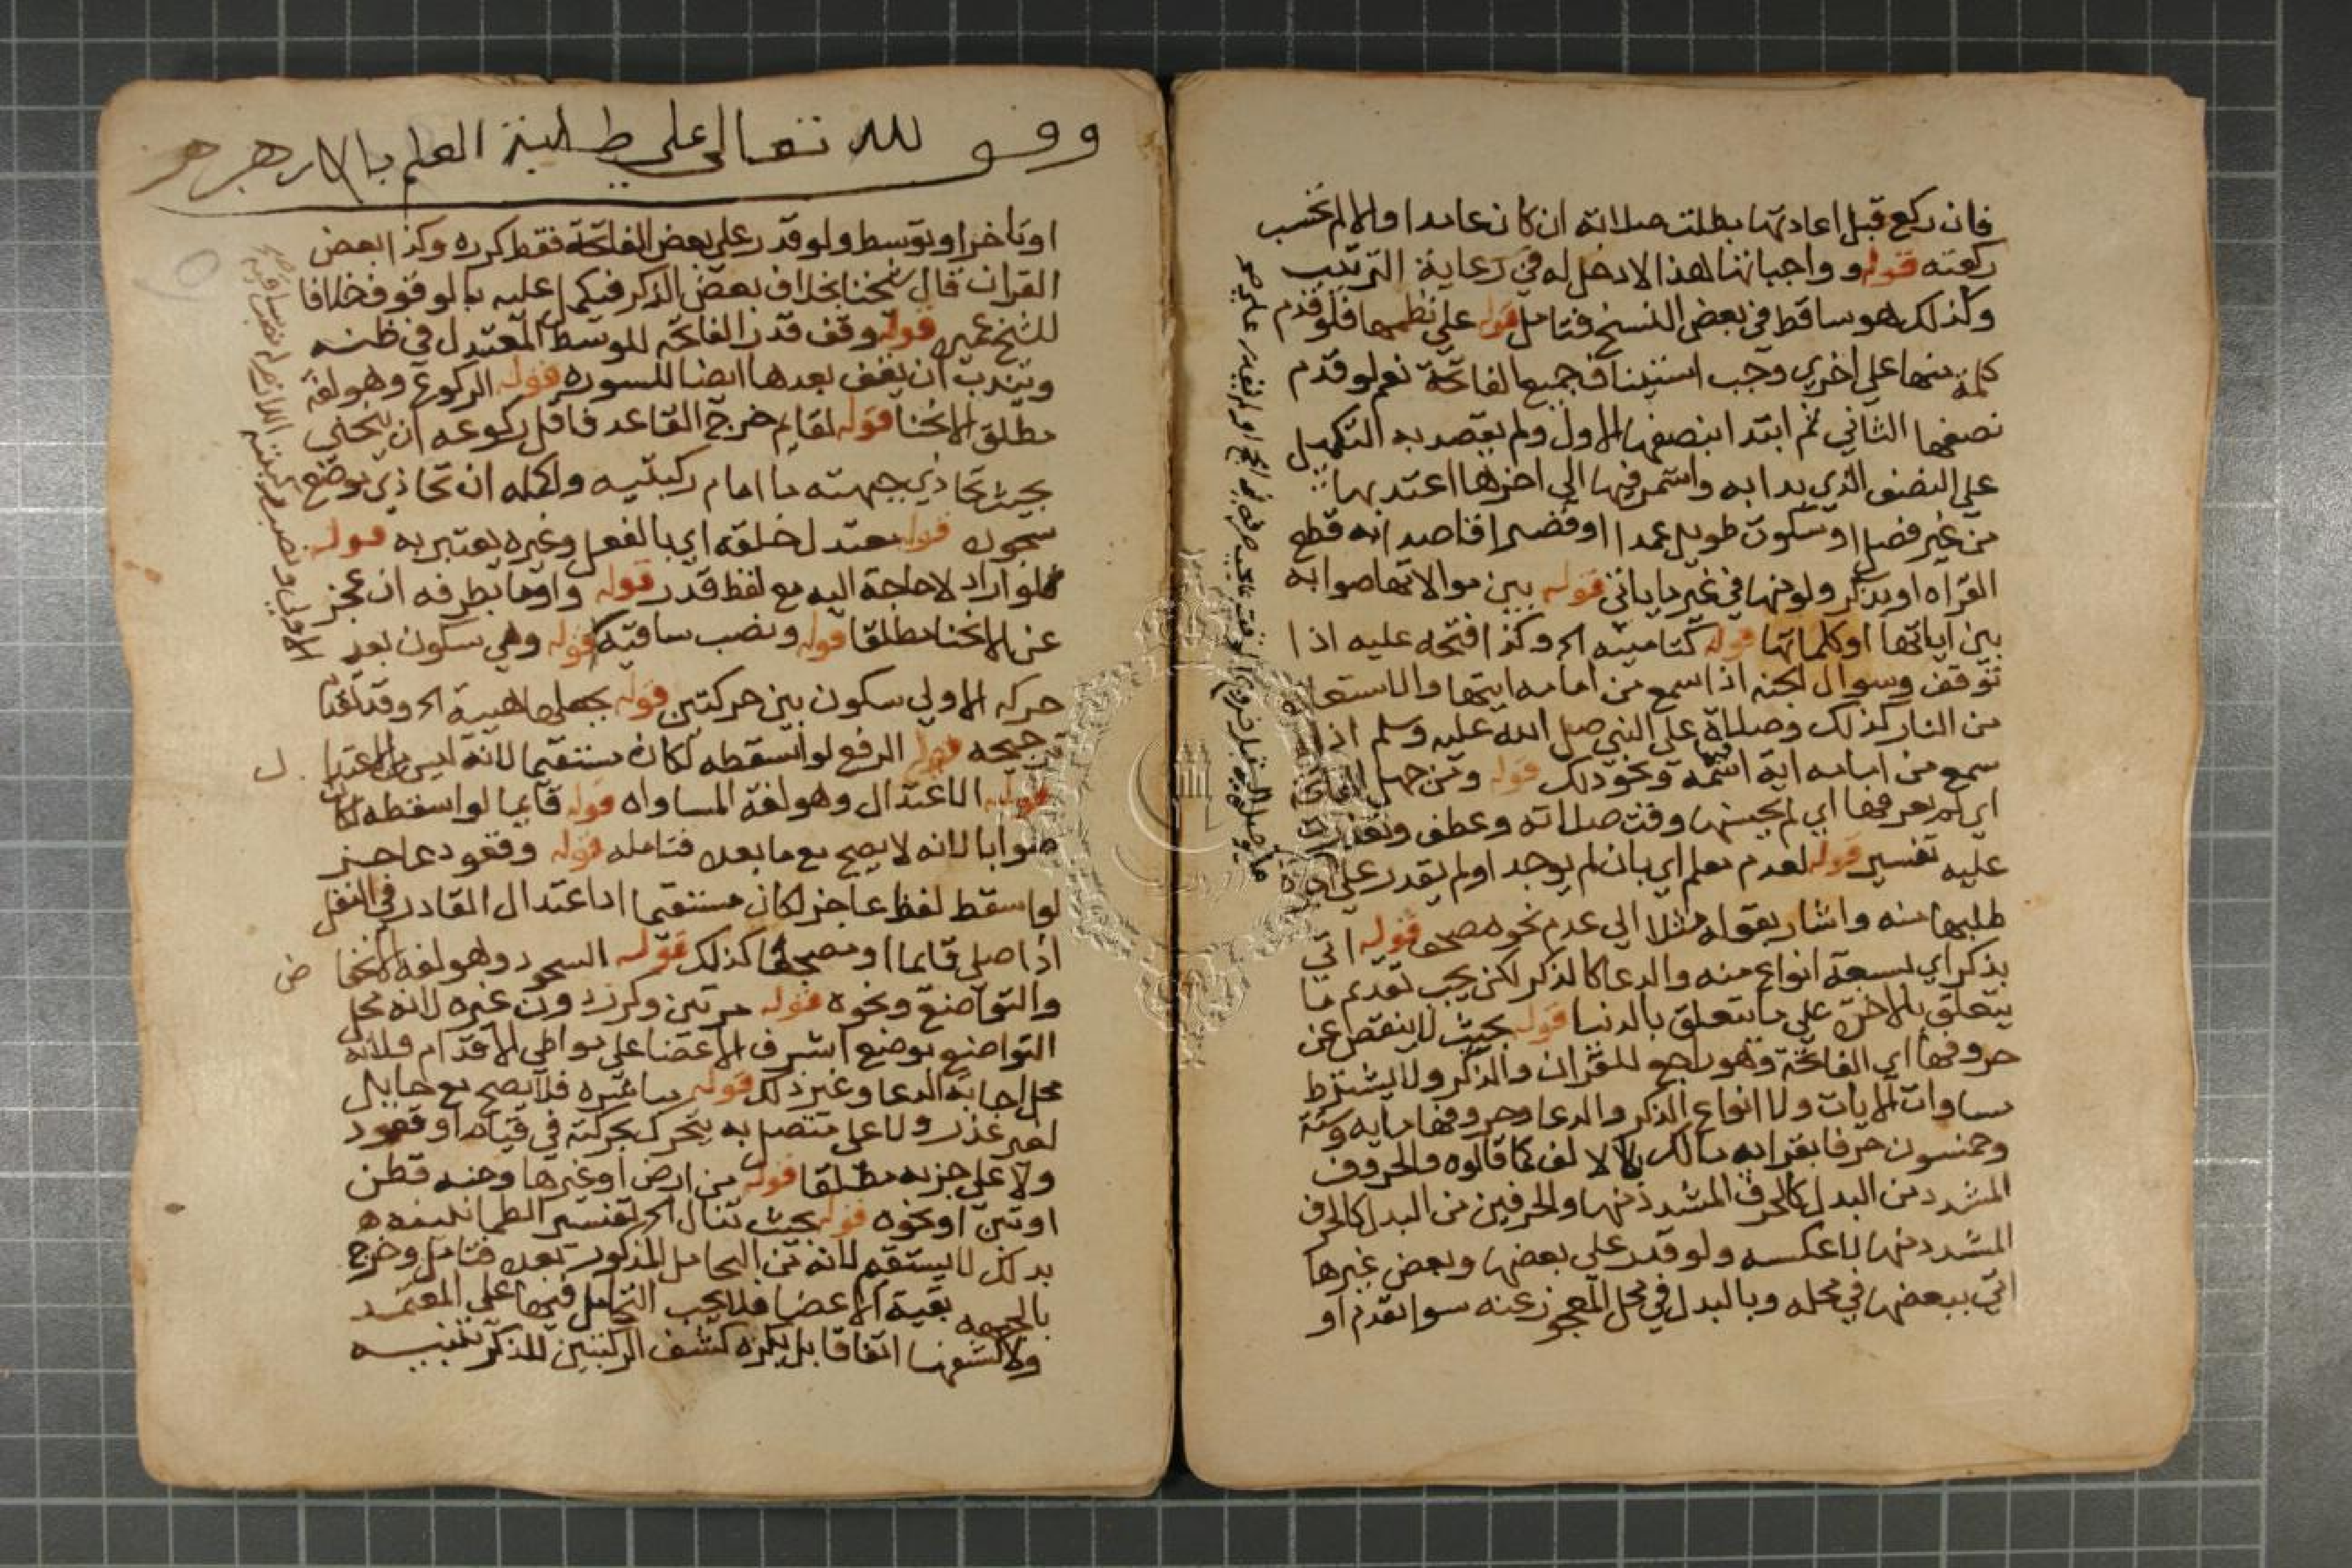 فان ركع قبل اعادتها بطلت صلاته ان كان عامدا والا لم تحسب
ركعته قوله وواجباتها هذا لا دخل له في رعاية الترتيب
وكذلك هو ساقط في بعض النسخ فتامل قوله على نظمها فلو قدم
كلمة منها على اخرى وجب استيناف جميع الفاتحة نعم لو قدم
نصفها الثاني ثم ابتدا بنصفها الاول ولم يقصد به التكميل
على النصف الذي بدا به واستمر فيها الى اخرها اعتد بها
من غير فصل او سكوت طويل عمدا او قصير قاصدا به قطع
القراه او بذكر ولو منها في غير ما ياتي قوله بين موالاتها صوابه
بين اياتها او كلماتها قوله كتامينه الخ وكذا فتحه عليه اذا
توقف وسوال الجنه اذا سمع من امامه ايتها والاستعاذة
من النار كذلك وصلاة على النبي صلى الله عليه وسلم اذا
سمع من امامه اية فيها اسمه ونحو ذلك قوله ومن جهل الفاتحة
اي لم يعرفها اي لم يحسنها وقت صلاته وعطف وتعذرت
عليه تفسير قوله لعدم معلم اي بان لم يوجد او لم يقدر على اجرة
طلبها منه واشار بقوله مثلا الى عدم نحو مصحف قوله اتى
بذكر اي سبعة انواع منه والدعا كالذكر لكن يجب تقديم ما
يتعلق بالاخرة على ما يتعلق بالدنيا قوله بحيث لا ينقص عن
حروفها اي الفاتحة وهو راجع للقران والذكر ولا يشترط
مساوات الايات ولا انواع الذكر والدعا وحروفها مايه وستة
وخمسون حرفا بقرايه مالك بلا الف كما قالوه والحروف
المشدد من البدل كالحرف المشدد منها والحرفين من البدل كالحرف
المشدد منها لا عكسه ولو قدر على بعضها وبعض غيرها
اتى ببعضها في محله وبالبدل في محل المعجوز عنه سوا تقدم او
وقف لله تعالى على طلبة العلم بالازهر
او تاخر او توسط ولو قدر على بعض الفاتحة فقط كرره وكذا بعض
القران قال شيخنا بخلاف بعض الذكر فيكمل عليه بالوقوف خلافا
للشيخ عميره قوله وقف قدر الفاتحة للوسط المعتدل في ظنه
ويندب ان يقف بعدها ايضا للسوره قوله الركوع وهو لغة
مطلق الانحنا قوله لقايم خرج القاعد فاقل ركوعه ان ينحني
بحيث تحاذي جبهته ما امام ركبتيه واكمله ان تحاذي موضع
سجوده قوله معتدل خلقه اي بالفعل وغيره يعتبر به قوله
فلو اراد لا حاجة اليه مع لفظ قدر قوله واوما بطرفه ان عجز
عن الانحنا مطلقا قوله ونصب ساقيه قوله وهي سكون بعد
حركه الاولى سكون بين حركتين قوله بجعلها هيية الخ وقد تقدم
ترجيحه قوله الرفع لو اسقطه لكان مستقيما لانه ليس من الاعتدال
قوله الاعتدال وهو لغة المساواه قوله قايما لو اسقطه لكان
صوابا لانه لا يصح مع ما بعده فتامله قوله وقعود عاجز
لو اسقط لفظ عاجز لكان مستقيما اذ اعتدال القادر في النفل
اذا صلى قايما او مضطجعا كذلك قوله السجود وهو لغة الانخفاض
والتواضع ونحوه قوله مرتين وكرر دون غيره لانه محل
التواضع بوضع اشرف الاعضا على مواطي الاقدام ولانه
محل اجابة الدعا وغير ذلك قوله مباشرة فلا يصح مع حايل
لغير عذر ولا على متصل به يتحرك بحركته في قيامه او قعود
ولا على جزيه مطلقا قوله من ارض او غيرها ومنه قطن
او تبن او نحوه قوله بحيث تنال الخ تفسير الطمانينة
بذلك لا يستقيم لانه من التحامل المذكور بعده فتامل وخرج
بالجبهه بقية الاعضا فلا يجب التحامل فيها على المعتمد
ولا كشفها اتفاقا بل يكره كشف الركبتين للذكر تنبيه